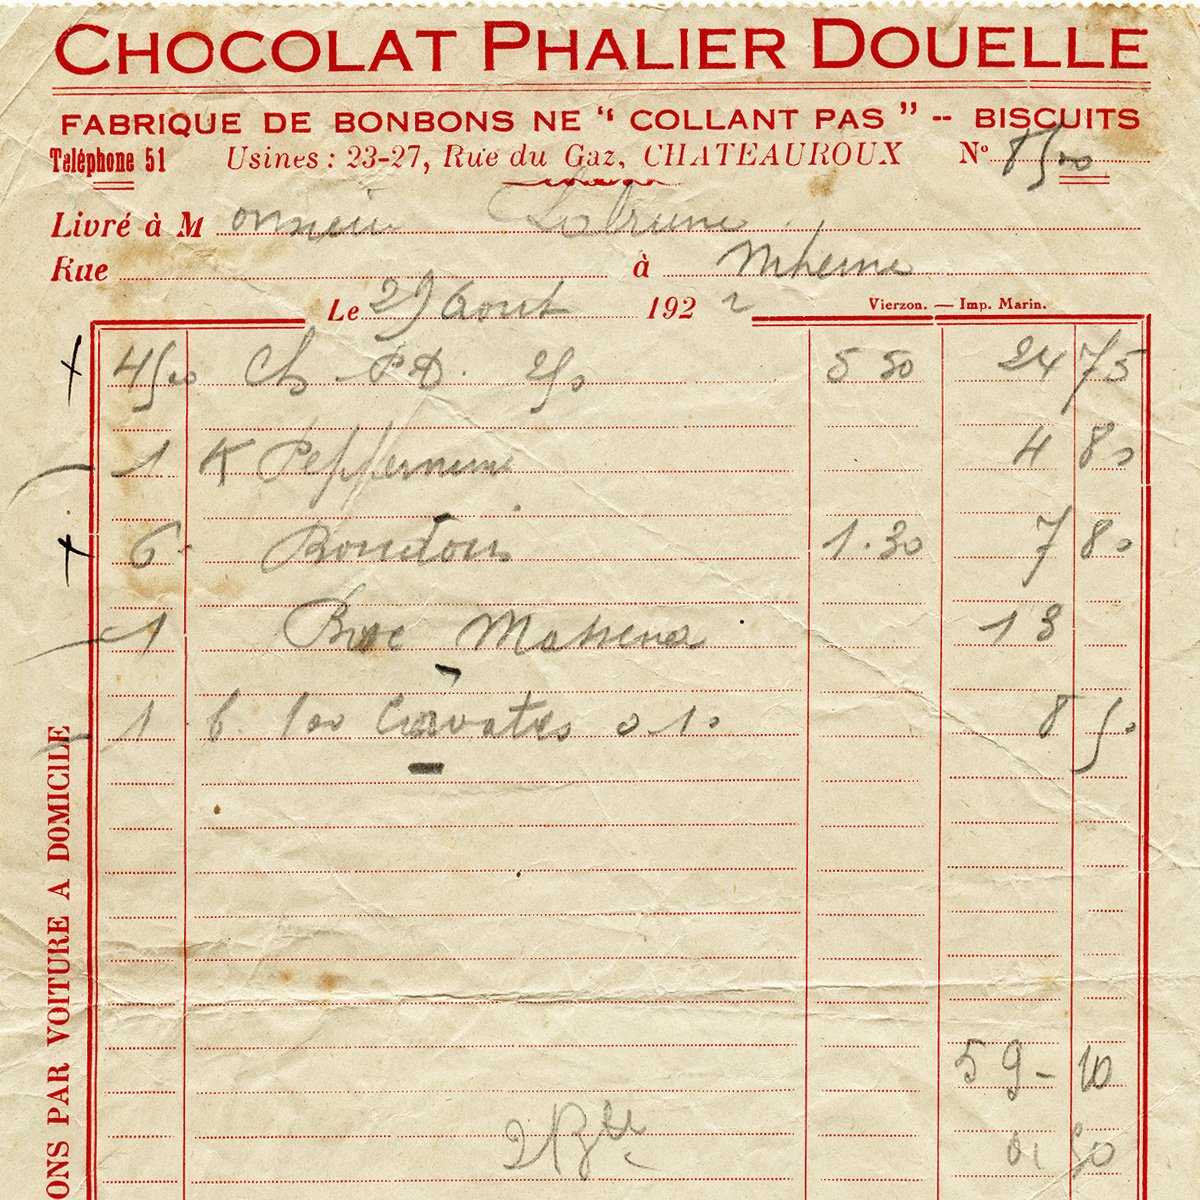 CHOCOLAT PHALIER DOUELLE
FABRIQUE DE BONBONS NE “ COLLANT PAS ” -- BISCUITS
Teléphone 51 Usines : 23-27, Rue du Gaz, CHATEAUROUX N°
Livré à Monsieur
Rue à
Le 29 Aout 1922
Vierzon. — Imp. Marin.
4500 Ch PD. 5 50 24 75
1 K Peppermint 4 80
6 1.30 7 80
1 Massena 13
1 b. 100 Cravates 0 10 8 50
59-10
ONS PAR VOITURE A DOMICILE